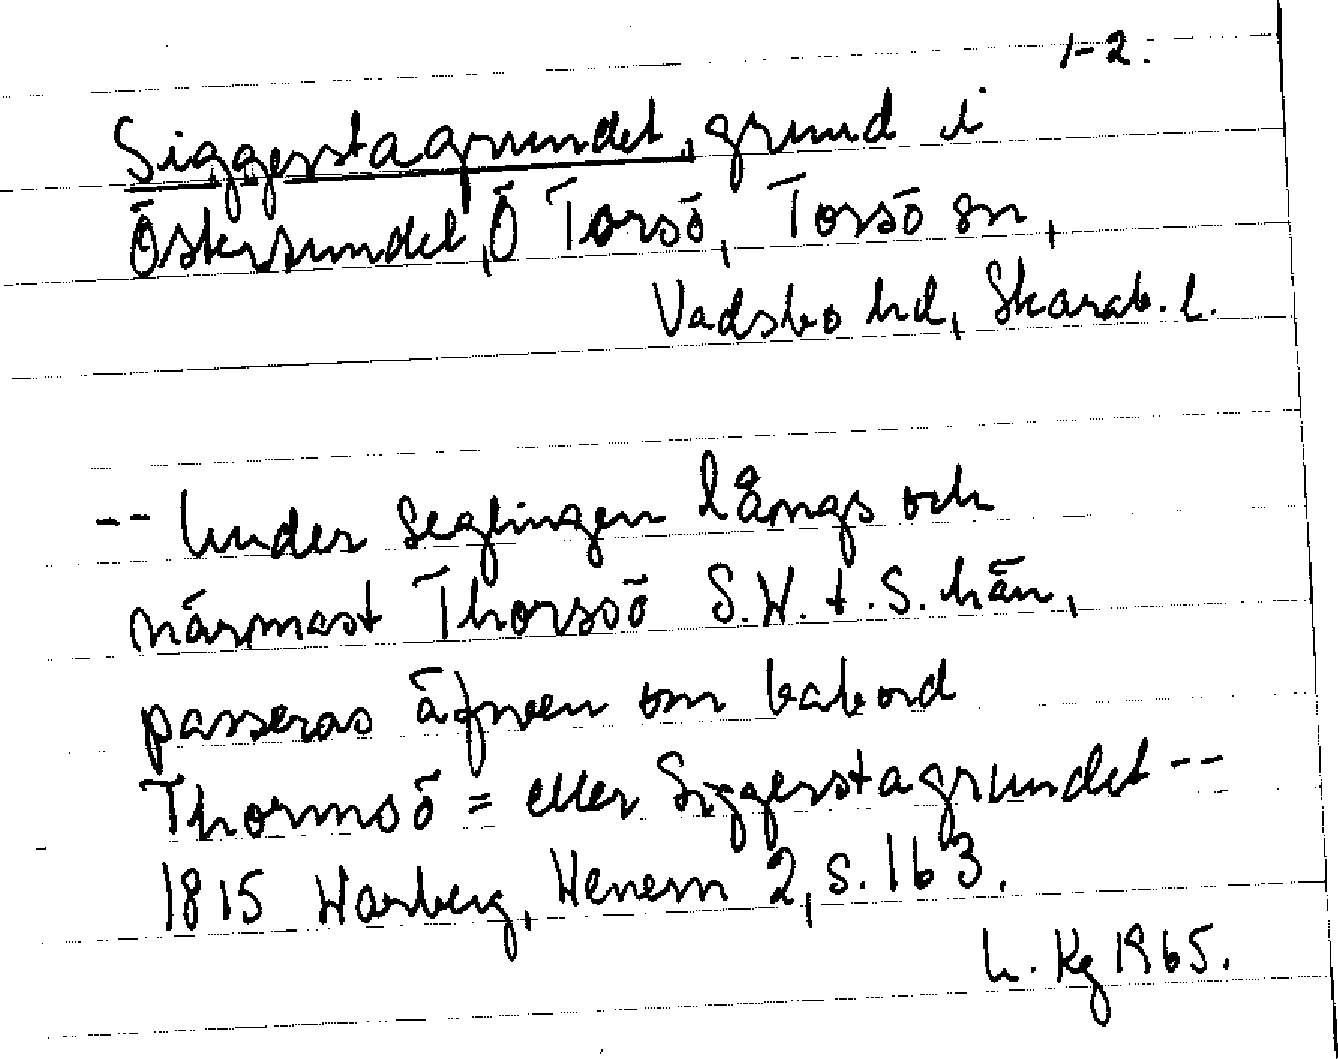 1-2.
Siggerstagrundet, grund i
Östersundet, Ö Torsö, Torsö sn,
Vadsbo hd, Skarab. l.
-- Under Seglingen långs och
närmast Thorssö S.W. t. S. hän,
passeras äfwen om babord
Thormsö= eller Siggerstagrundet --
1815 Warberg, Wenern 2, s. 163.
L. Kg 1965.